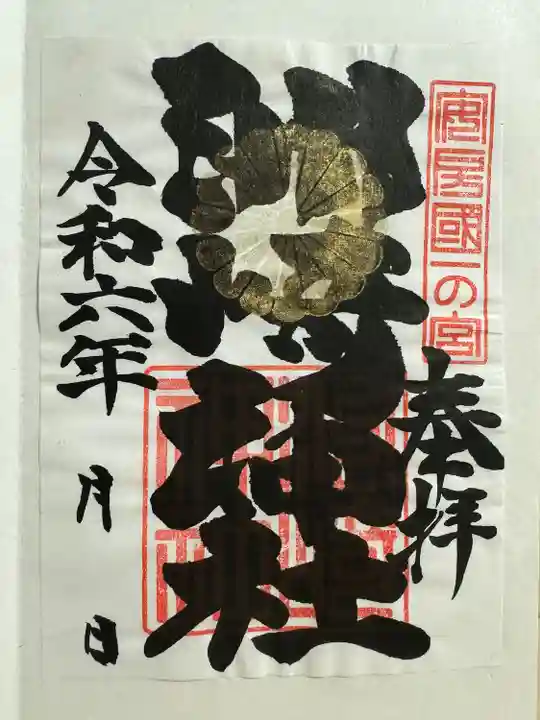 安房國一の宮
奉拝
神社
令和六年
月
日